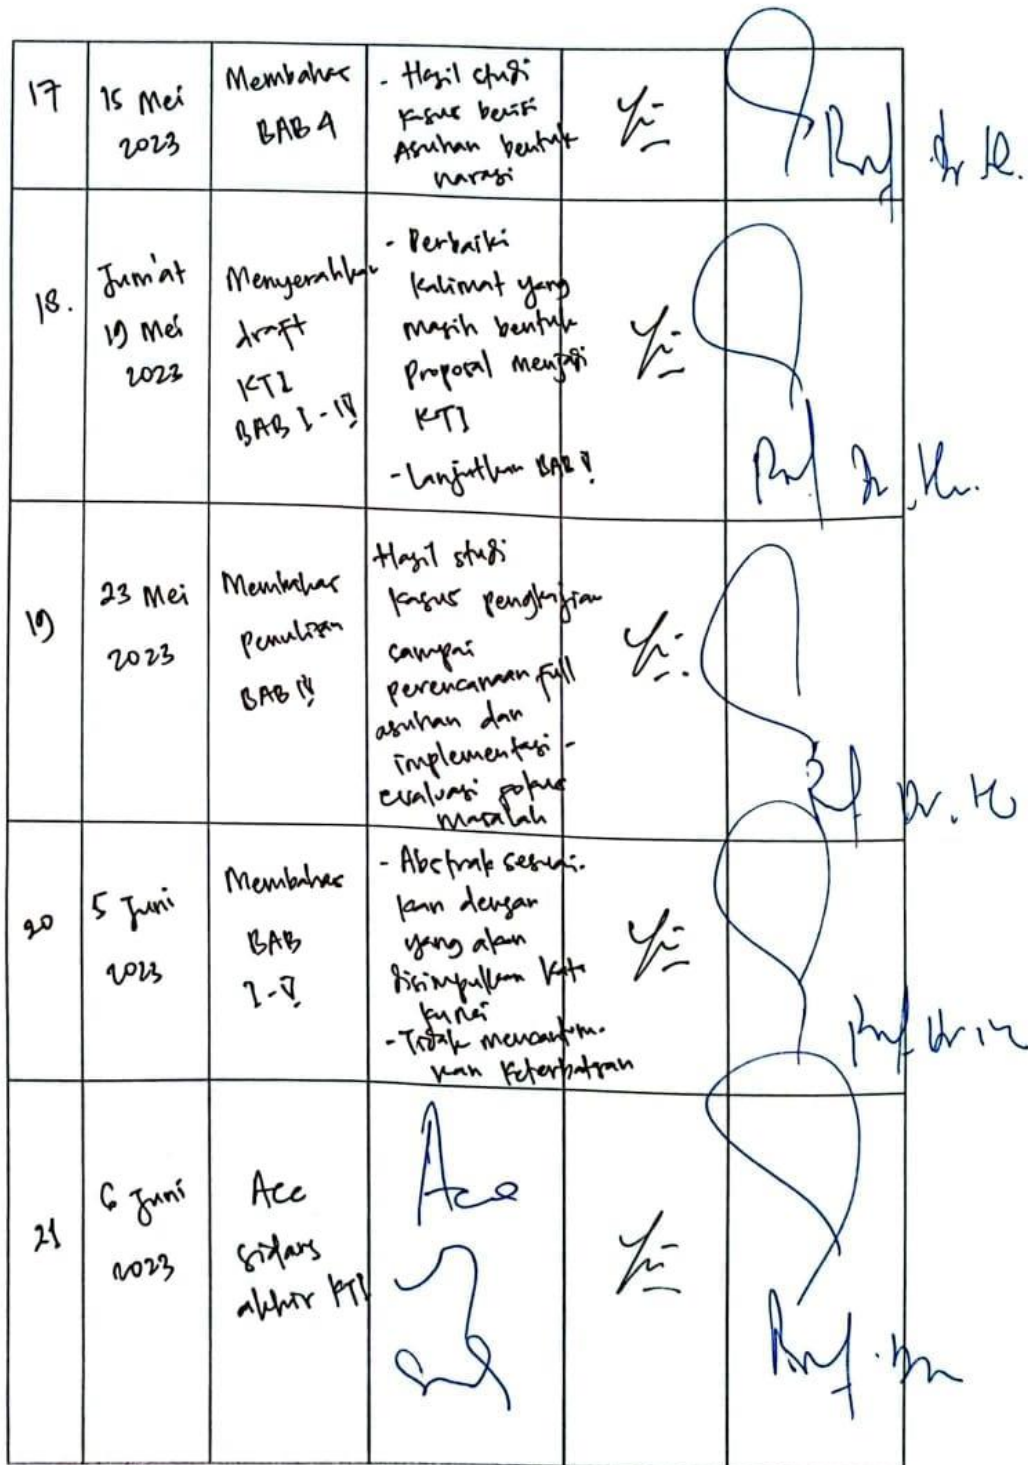 17
15 Mei
2023
Membahas
BAB 4
- Hasil studi
kasus berisi
Asuhan bentuk
narasi
Prof. Dr. H.
18.
Jum'at
19 Mei
2023
Menyerahkan
draft
KTI
BAB I - IV
- Perbaiki
kalimat yang
masih bentuk
Proposal menjadi
KTI
- Lanjutkan BAB V
Prof Dr. H.
19
23 Mei
2023
Membahas
Penulisan
BAB IV
Hasil studi
kasus pengkajian
sampai
perencanaan full
asuhan dan
implementasi -
evaluasi fokus
masalah
Prof Dr. H
20
5 Juni
2023
Membahas
BAB
I - V
- Abstrak sesuai-
kan dengan
yang akan
disimpulkan kata
kunci
- Tidak mencantum-
kan keterbatasan
Prof. Dr.
21
6 Juni
2023
Acc
sidang
akhir KTI
Acc
Prof.